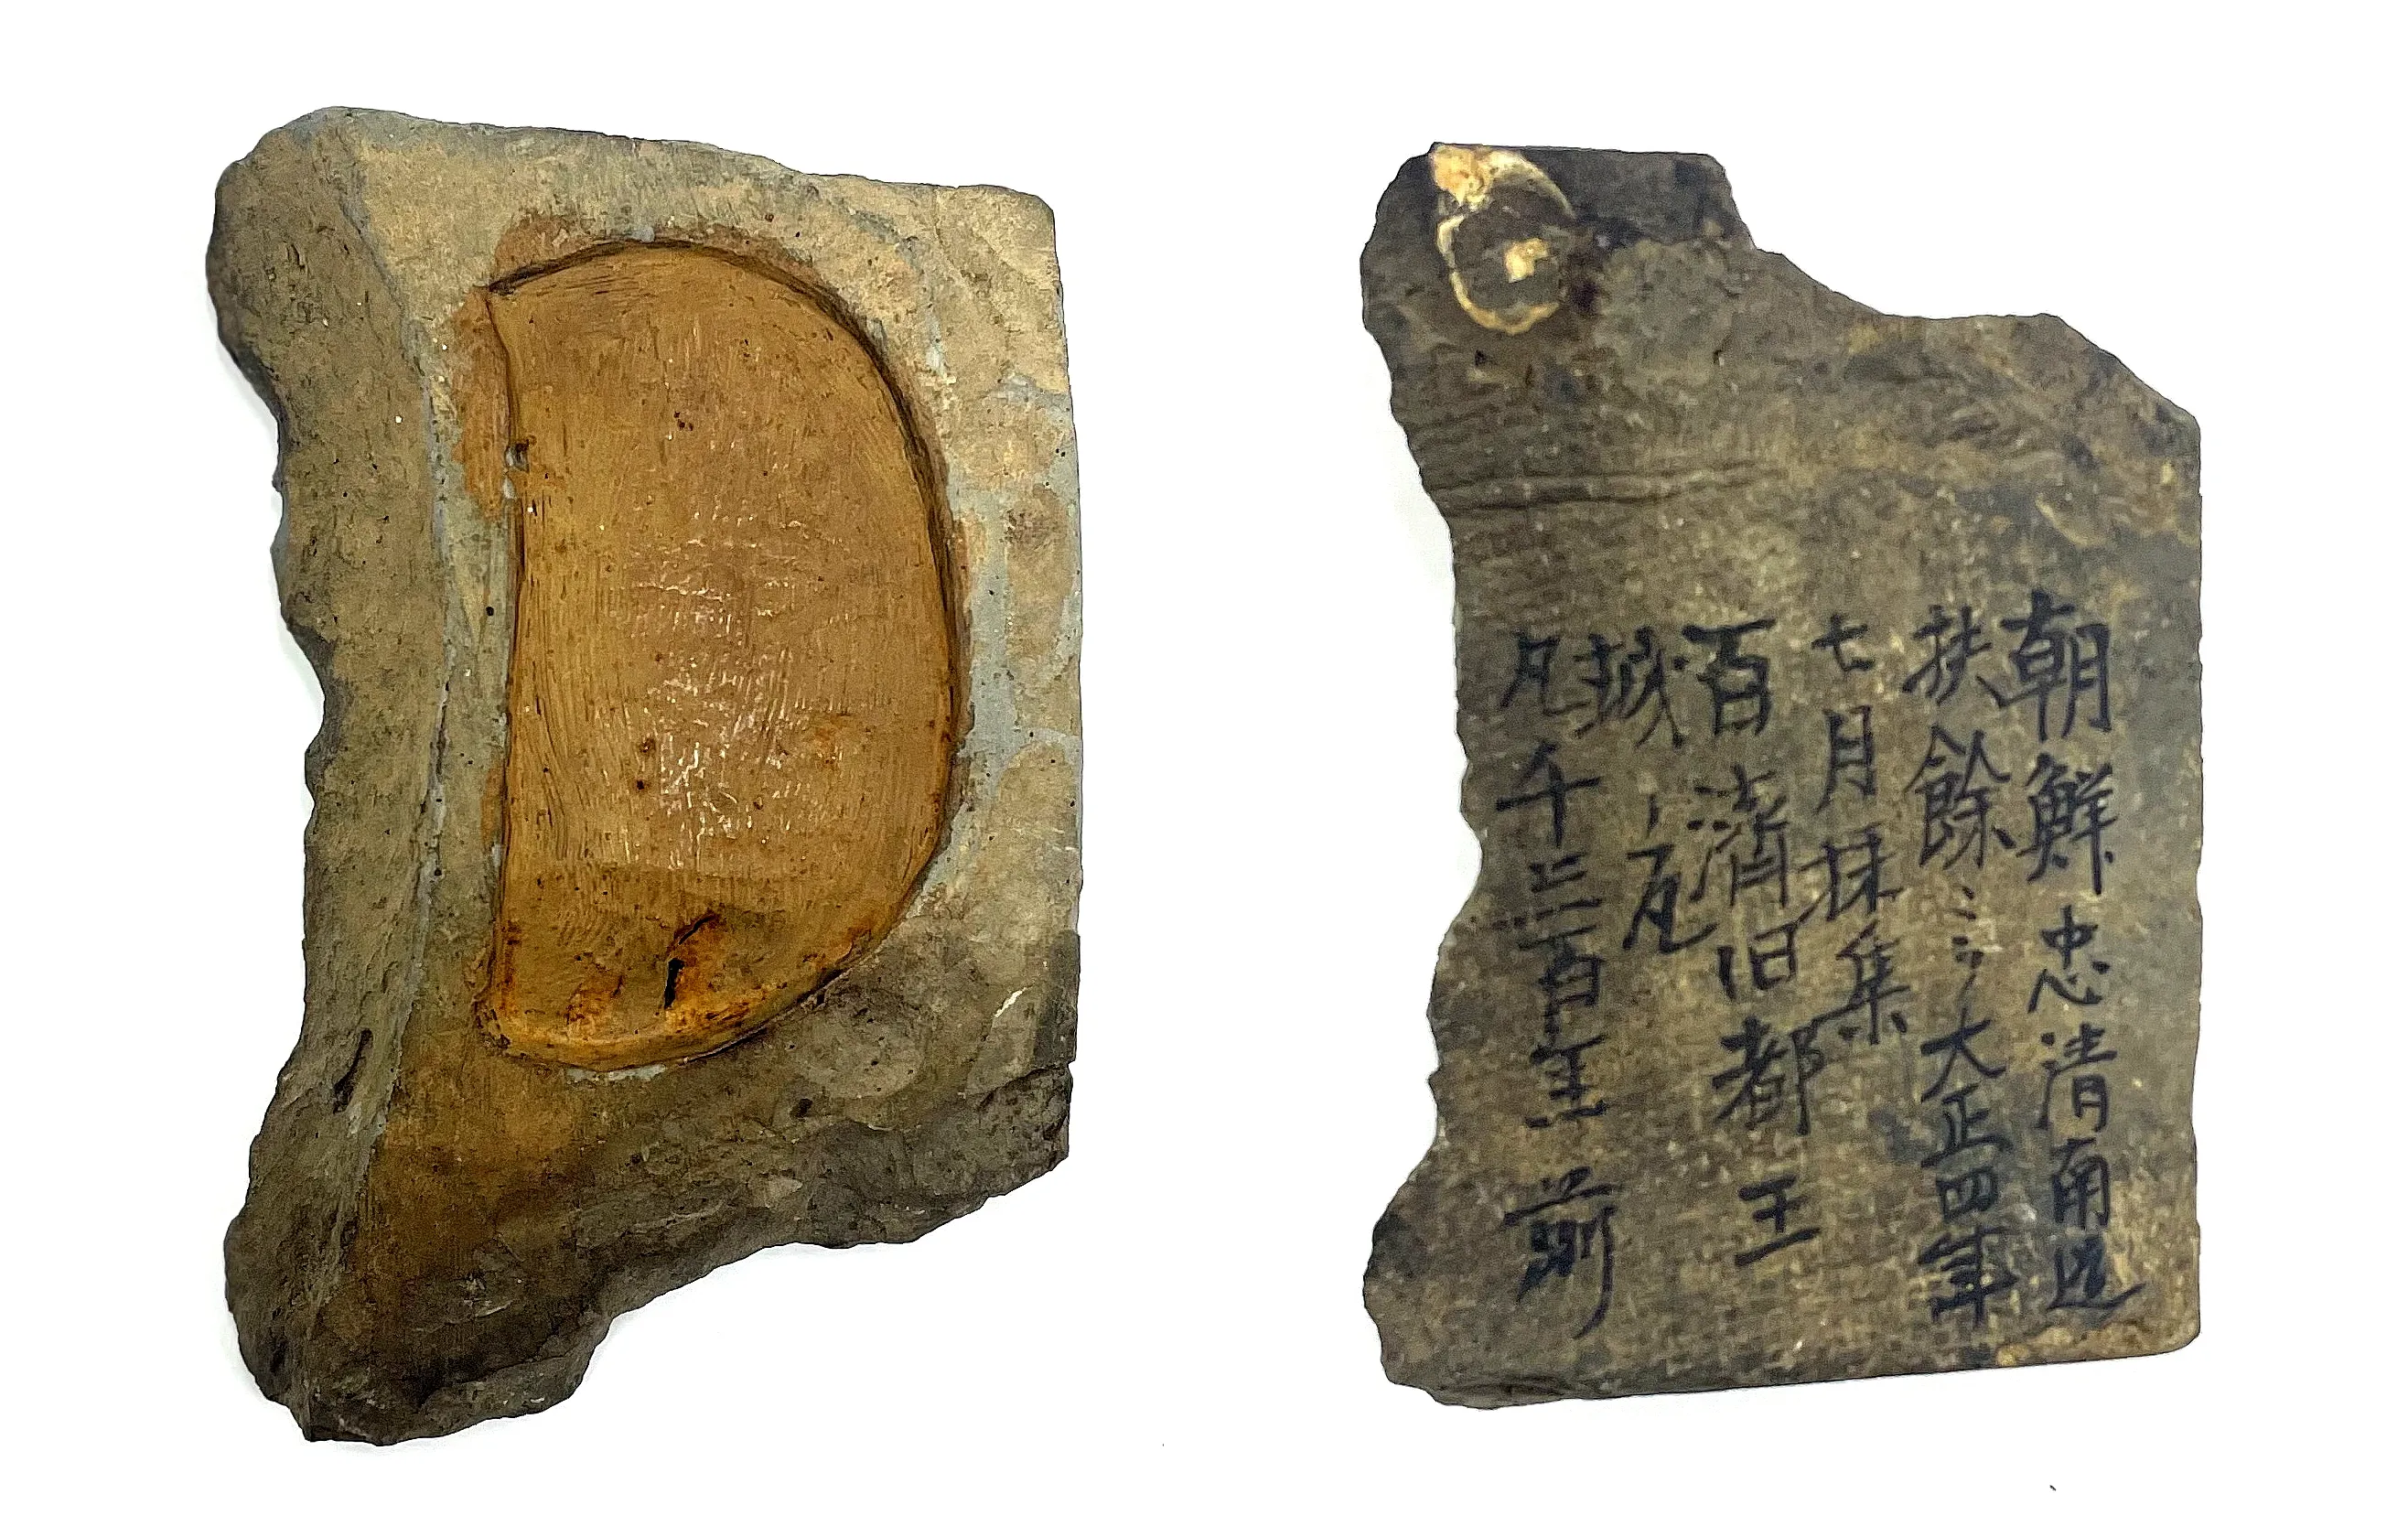 朝鮮忠清南道
扶餘ニテ大正四年
七月採集
百済旧都王
城ノ瓦
凡千三百年前